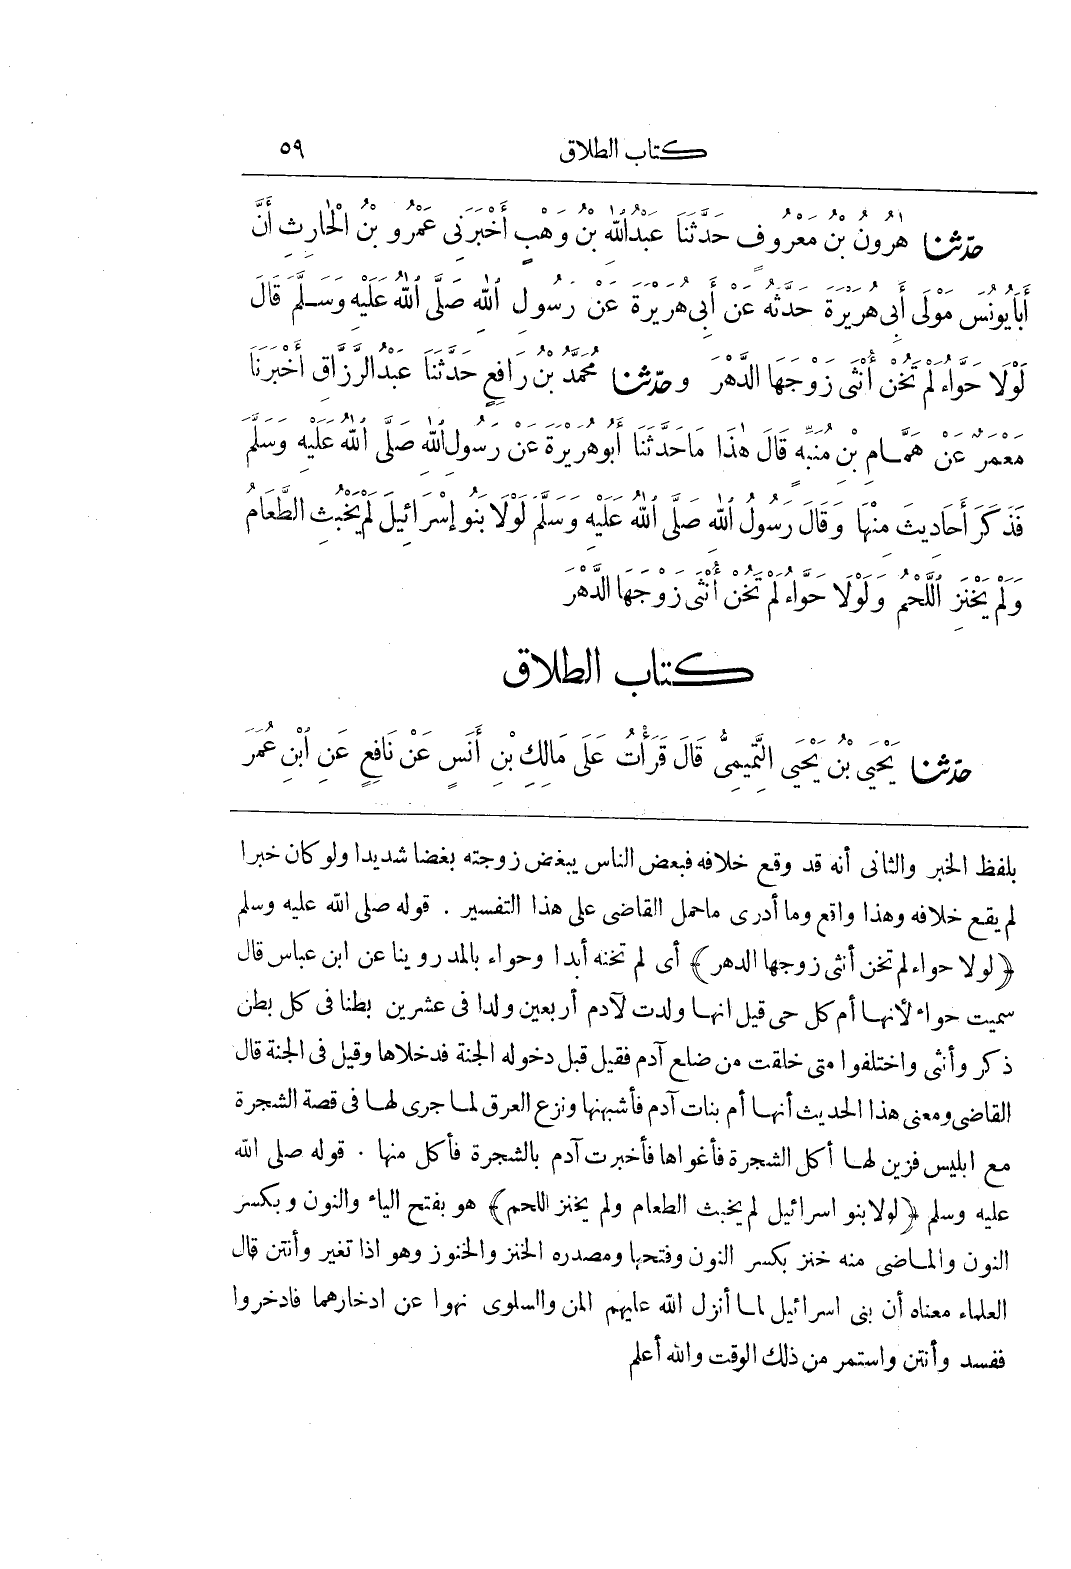 كتاب الطلاق ٥٩
حَدَّثَنَا هٰرُونُ بْنُ مَعْرُوفٍ حَدَّثَنَا عَبْدُ اللّٰهِ بْنُ وَهْبٍ أَخْبَرَنِى عَمْرُو بْنُ الْحَارِثِ أَنَّ
أَبَا يُونُسَ مَوْلَى أَبِى هُرَيْرَةَ حَدَّثَهُ عَنْ أَبِى هُرَيْرَةَ عَنْ رَسُولِ اللّٰهِ صَلَّى اللّٰهُ عَلَيْهِ وَسَلَّمَ قَالَ
لَوْلَا حَوَّاءُ لَمْ تَخُنْ أُنْثَى زَوْجَهَا الدَّهْرَ وحَدَّثَنَا مُحَمَّدُ بْنُ رَافِعٍ حَدَّثَنَا عَبْدُ الرَّزَّاقِ أَخْبَرَنَا
مَعْمَرٌ عَنْ هَمَّامِ بْنِ مُنَبِّهٍ قَالَ هٰذَا مَا حَدَّثَنَا أَبُو هُرَيْرَةَ عَنْ رَسُولِ اللّٰهِ صَلَّى اللّٰهُ عَلَيْهِ وَسَلَّمَ
فَذَكَرَ أَحَادِيثَ مِنْهَا وَقَالَ رَسُولُ اللّٰهِ صَلَّى اللّٰهُ عَلَيْهِ وَسَلَّمَ لَوْلَا بَنُو إِسْرَائِيلَ لَمْ يَخْبُثِ الطَّعَامُ
وَلَمْ يَخْنَزِ اللَّحْمُ وَلَوْلَا حَوَّاءُ لَمْ تَخُنْ أُنْثَى زَوْجَهَا الدَّهْرَ
كتاب الطلاق
حَدَّثَنَا يَحْيَى بْنُ يَحْيَى التَّمِيمِىُّ قَالَ قَرَأْتُ عَلَى مَالِكِ بْنِ أَنَسٍ عَنْ نَافِعٍ عَنِ ابْنِ عُمَرَ
بلفظ الخبر والثانى أنه قد وقع خلافه فبعض الناس يبغض زوجته بغضا شديدا ولو كان خبرا
لم يقع خلافه وهذا واقع وما أدرى ماحمل القاضى على هذا التفسير . قوله صلى الله عليه وسلم
﴿لولا حواء لم تخن أنثى زوجها الدهر﴾ أى لم تخنه أبدا وحواء بالمد روينا عن ابن عباس قال
سميت حواء لأنها أم كل حى قيل انها ولدت لآدم أربعين ولدا فى عشرين بطنا فى كل بطن
ذكر وأنثى واختلفوا متى خلقت من ضلع آدم فقيل قبل دخوله الجنة فدخلاها وقيل فى الجنة قال
القاضى ومعنى هذا الحديث أنها أم بنات آدم فأشبهنها ونزع العرق لما جرى لها فى قصة الشجرة
مع ابليس فزين لها أكل الشجرة فأغواها فأخبرت آدم بالشجرة فأكل منها . قوله صلى الله
عليه وسلم ﴿لولا بنو اسرائيل لم يخبث الطعام ولم يخنز اللحم﴾ هو بفتح الياء والنون وبكسر
النون والماضى منه خنز بكسر النون وفتحها ومصدره الخنز والخنوز وهو اذا تغير وأنتن قال
العلماء معناه أن بنى اسرائيل لما أنزل الله عليهم المن والسلوى نهوا عن ادخارهما فادخروا
ففسد وأنتن واستمر من ذلك الوقت والله أعلم